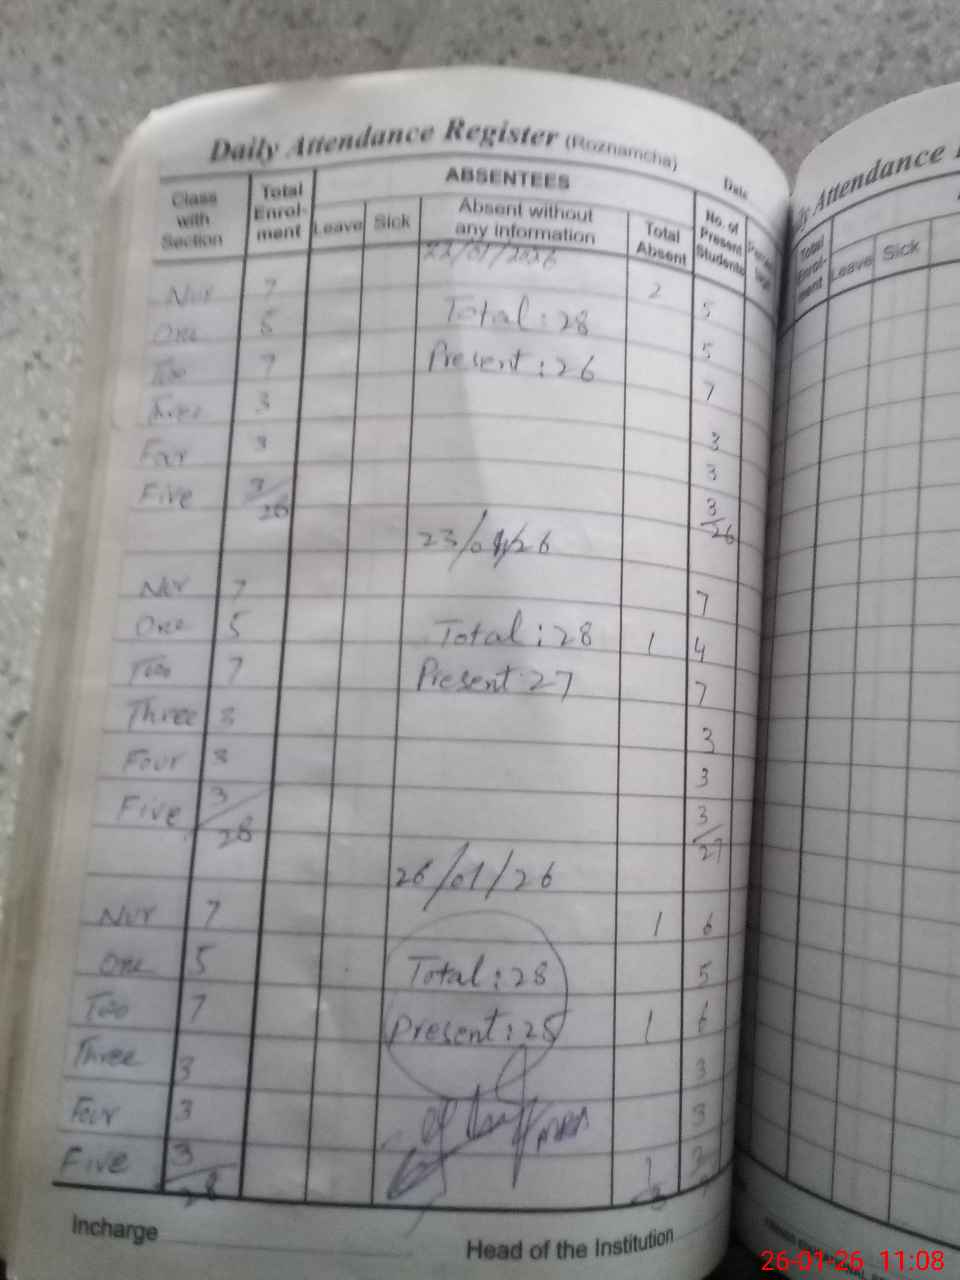 Daily Attendance Register (Roznamcha)
Date
Class with Section
Total Enrol-ment
ABSENTEES
Leave
Sick
Absent without any information
Total Absent
No. of Present Students
22/01/2026
Nur 7 2 5
One 5 Total : 28 5
Too 7 Present : 26 7
Three 3 3
Four 3 3
Five 3 3
28 26
23/01/26
Nur 7 7
One 5 Total : 28 1 4
Too 7 Present 27 7
Three 3 3
Four 3 3
Five 3 3
28 27
26/01/26
Nur 7 1 6
One 5 Total : 28 5
Too 7 Present : 25 1 6
Three 3 3
Four 3 3
Five 3 1
28
Incharge
Head of the Institution
Attendance
Total Enrol-ment
Leave
Sick
26-01-26 11:08